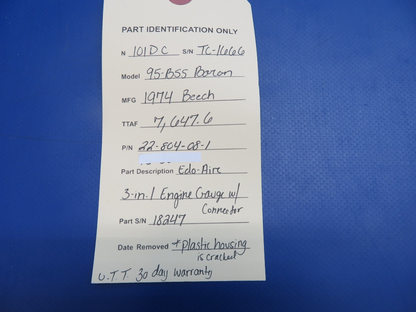 PART IDENTIFICATION ONLY
N 101DC S/N TC-1666
Model 95-B55 Baron
MFG 1974 Beech
TTAF 7,647.6
P/N 22-804-08-1
Part Description Edo-Aire
3-in-1 Engine Gauge w/
Connector
Part S/N 18247
Date Removed *plastic housing
is cracked
U.T.T 30 day warranty